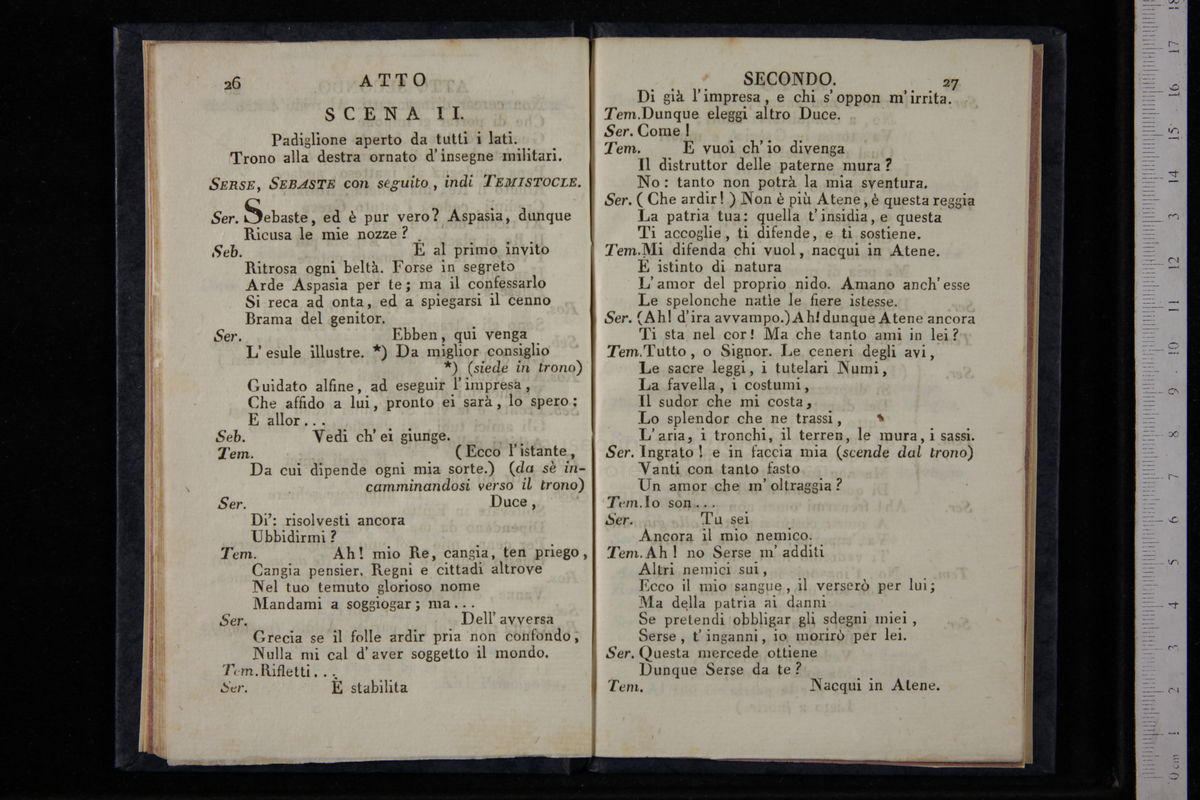 26 ATTO
SCENA II.
Padiglione aperto da tutti i lati.
Trono alla destra ornato d'insegne militari.
SERSE, SEBASTE con seguito, indi TEMISTOCLE.
Ser. Sebaste, ed è pur vero? Aspasia, dunque
Ricusa le mie nozze?
Seb. È al primo invito
Ritrosa ogni beltà. Forse in segreto
Arde Aspasia per te; ma il confessarlo
Si reca ad onta, ed a spiegarsi il cenno
Brama del genitor.
Ser. Ebben, qui venga
L'esule illustre. *) Da miglior consiglio
*) (siede in trono)
Guidato alfine, ad eseguir l'impresa,
Che affido a lui, pronto ei sarà, lo spero;
E allor...
Seb. Vedi ch'ei giunge.
Tem. (Ecco l'istante,
Da cui dipende ogni mia sorte.) (da sè in-
camminandosi verso il trono)
Ser. Duce,
Di': risolvesti ancora
Ubbidirmi?
Tem. Ah! mio Re, cangia, ten priego,
Cangia pensier. Regni e cittadi altrove
Nel tuo temuto glorioso nome
Mandami a soggiogar; ma...
Ser. Dell'avversa
Grecia se il folle ardir pria non confondo,
Nulla mi cal d'aver soggetto il mondo.
Tem. Rifletti...
Ser. È stabilita
SECONDO. 27
Di già l'impresa, e chi s'oppon m'irrita.
Tem. Dunque eleggi altro Duce.
Ser. Come!
Tem. E vuoi ch'io divenga
Il distruttor delle paterne mura?
No: tanto non potrà la mia sventura.
Ser. (Che ardir!) Non è più Atene, è questa reggia
La patria tua: quella t'insidia, e questa
Ti accoglie, ti difende, e ti sostiene.
Tem. Mi difenda chi vuol, nacqui in Atene.
È istinto di natura
L'amor del proprio nido. Amano anch'esse
Le spelonche natìe le fiere istesse.
Ser. (Ah! d'ira avvampo.) Ah! dunque Atene ancora
Ti sta nel cor! Ma che tanto ami in lei?
Tem. Tutto, o Signor. Le ceneri degli avi,
Le sacre leggi, i tutelari Numi,
La favella, i costumi,
Il sudor che mi costa,
Lo splendor che ne trassi,
L'aria, i tronchi, il terren, le mura, i sassi.
Ser. Ingrato! e in faccia mia (scende dal trono)
Vanti con tanto fasto
Un amor che m'oltraggia?
Tem. Io son...
Ser. Tu sei
Ancora il mio nemico.
Tem. Ah! no Serse m'additi
Altri nemici sui,
Ecco il mio sangue, il verserò per lui;
Ma della patria ai danni
Se pretendi obbligar gli sdegni miei,
Serse, t'inganni, io morirò per lei.
Ser. Questa mercede ottiene
Dunque Serse da te?
Tem. Nacqui in Atene.
0 cm 1 2 3 4 5 6 7 8 9 10 11 12 13 14 15 16 17 18